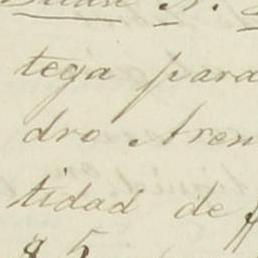 tega para
dro Aren
tidad de
85